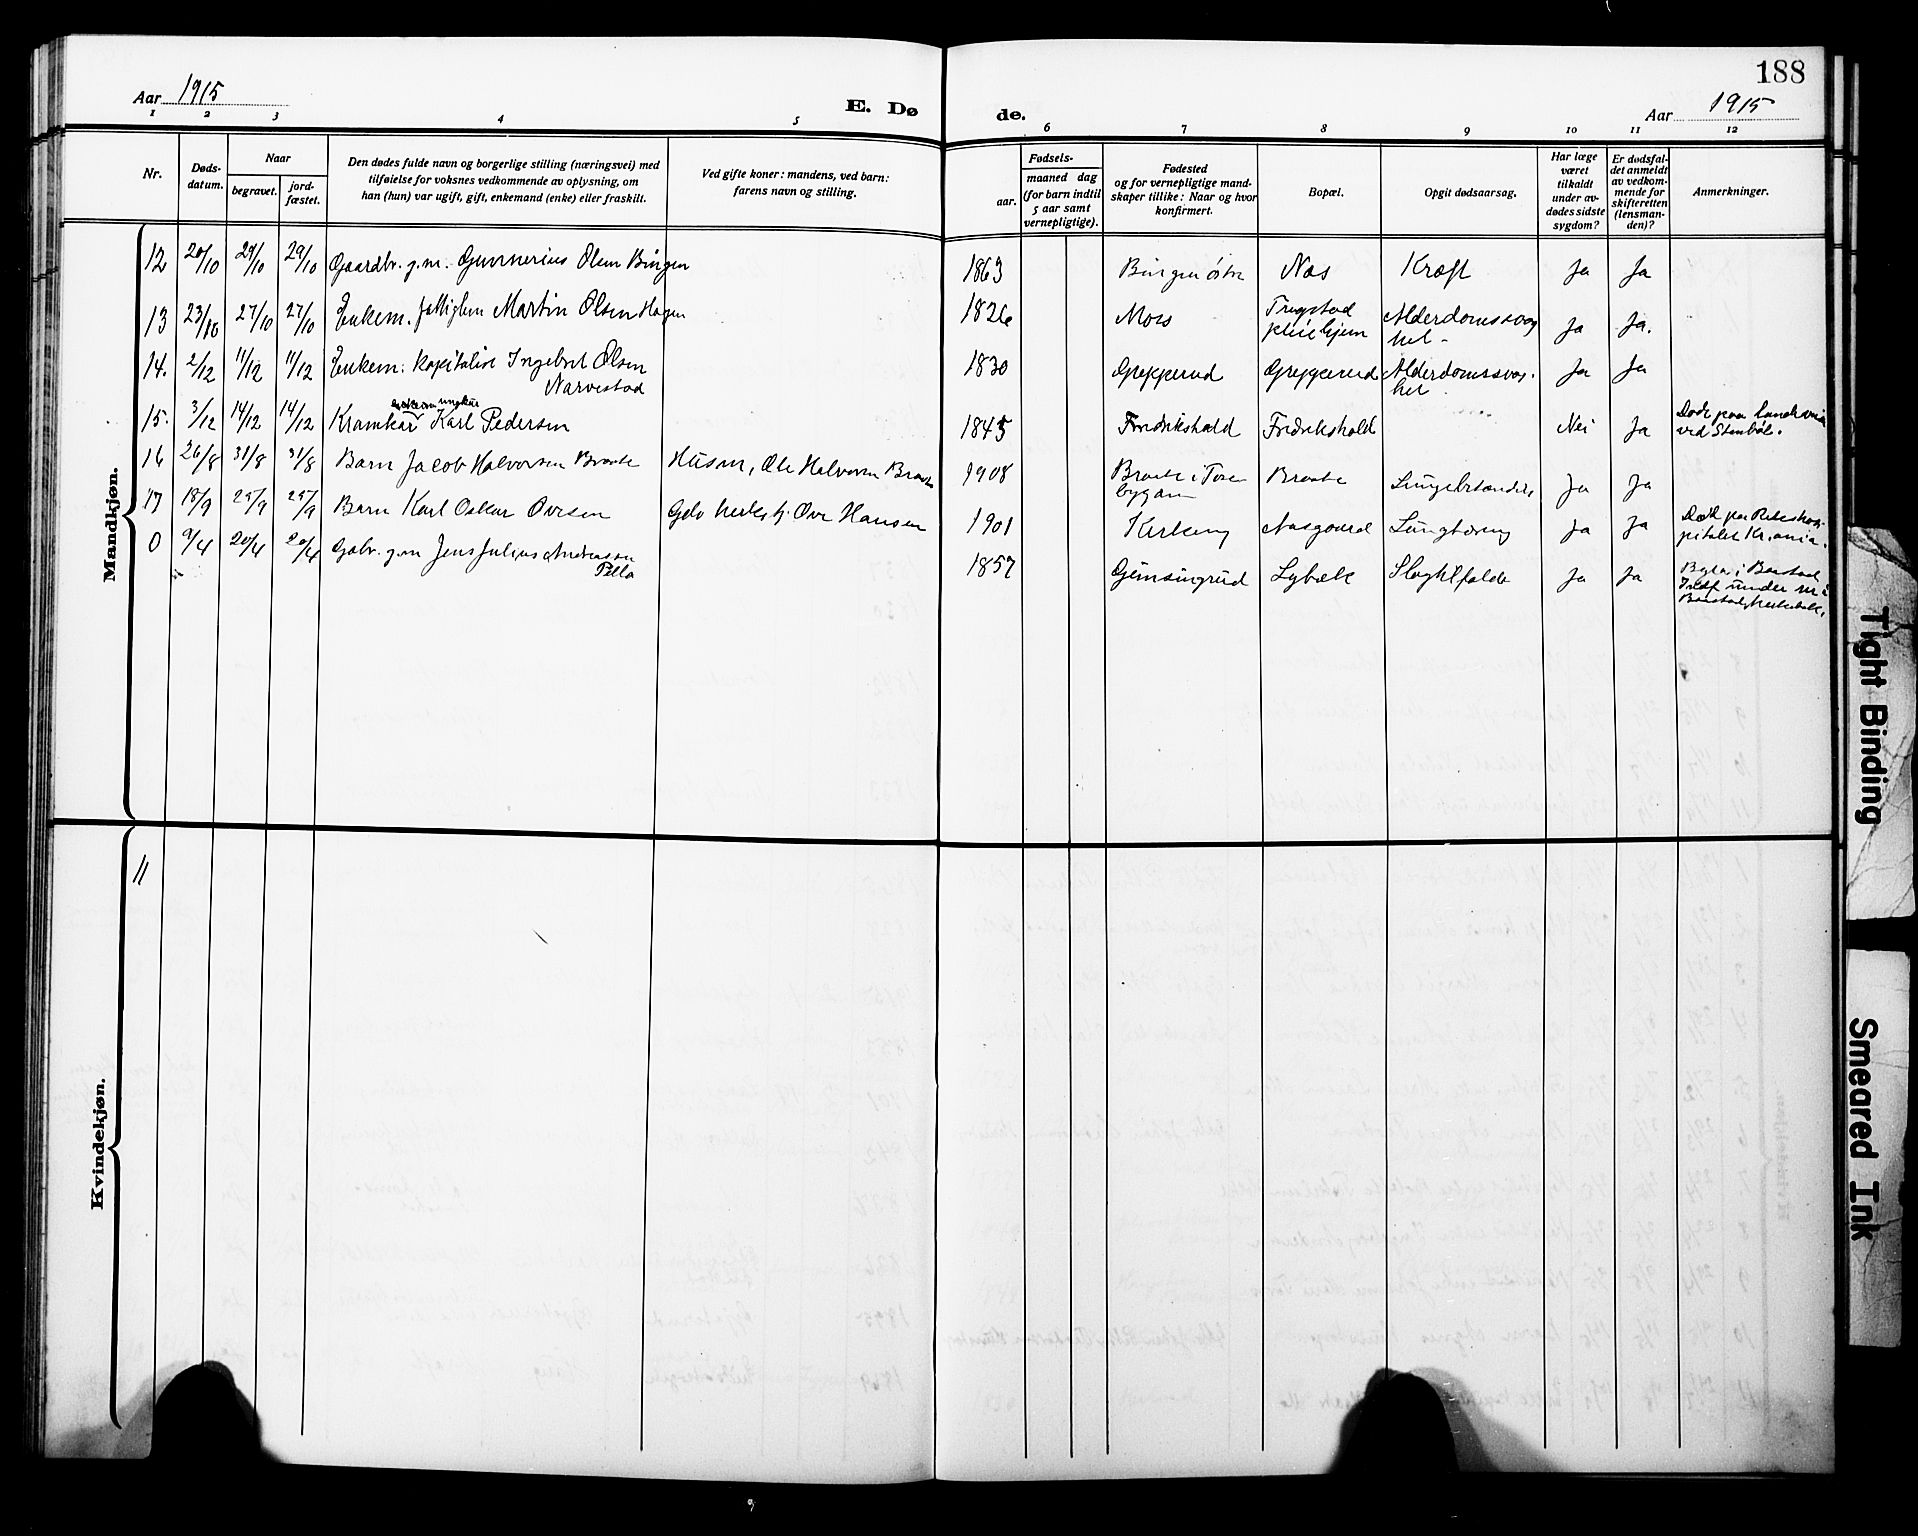 188
Aar 1915
E. Dø
de.
Aar 1915
1 2 3 4 5 6 7 8 9 10 11 12
Nr.
Døds-
datum.
Naar
begravet.
jord-
fæstet.
Den dødes fulde navn og borgerlige stilling (næringsvei) med
tilføielse for voksnes vedkommende av oplysning, om
han (hun) var ugift, gift, enkemand (enke) eller fraskilt.
Ved gifte koner: mandens, ved barn:
farens navn og stilling.
Fødsels-
aar.
maaned dag
(for barn indtil
5 aar samt
vernepligtige).
Fødested
og for vernepligtige mand-
skaper tillike: Naar og hvor
konfirmert.
Bopæl.
Opgit dødsaarsag.
Har læge
været
tilkaldt
under av-
dødes sidste
sygdom?
Er dødsfal-
det anmeldt
av vedkom-
mende for
skifteretten
(lensman-
den)?
Anmerkninger.
Mandkjøn.
12 20/10 29/10 29/10 Gaardbr. g.m. Gunnerius Olsen Bingen 1863 Bingen østre Næs Kræft Ja Ja
13 23/10 27/10 27/10 Enkem. Martin Olsen Hagen 1826 Moss Trygstad Alderdomssvag Ja Ja.
pleiehjem het -
14. 2/12 11/12 11/12 Enkem. kapitalist Ingebret Olsen 1830 Greppperud Alderdomssvag- Ja Ja
Narvestad het
15. 3/12 14/12 14/12 Kramkar Karl Pedersen 1845 Fredrikshald Fredrikshald Nei Ja Død paa
ved Stenbøl.
16 26/8 31/8 31/8 Barn Jacob Halvorsen Braate Husm. Ole Halvorsen Braate 1908 Braate i Braate Ja Ja
17 18/9 25/9 25/9 Barn Karl Oskar Ovesen Ove Hansen 1901 Kirkeng Aasgaard Lungtæring Ja Ja Død paa
pitalet Kr.ania.
0 9/4 20/4 20/4 Gabr. g.m Jens Julius Andreassen 1857 Gimsingrud Lybæk Slagtilfælde Ja Ja
under nr
11
Kvindekjøn.
Tight Binding
Smeared Ink